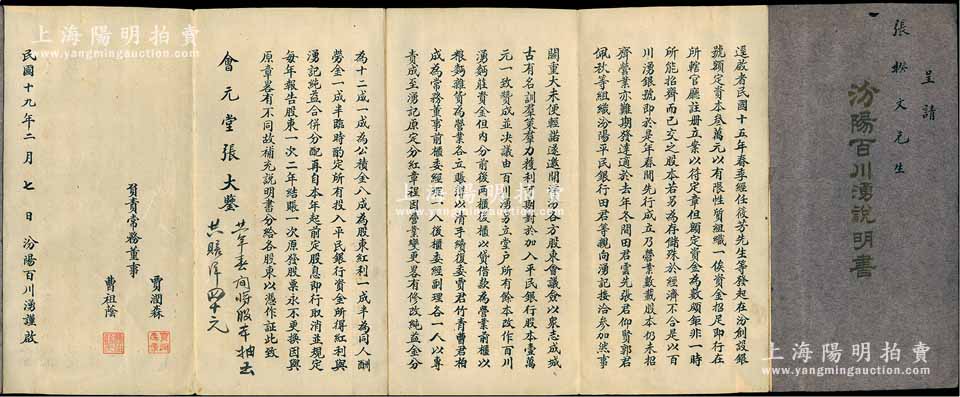 張揆文先生
呈請
汾陽百川湧說明書
逕啟者民國十五年春季經任筱芳先生等發起在汾創設銀
號額定資本叁萬元以有限性質組織一俟資金招足即行在
所轄官廳註册立案以待定章但額定資金為數頗鉅非一時
所能招齊而已交之股本若另為存儲殊於經濟不合是以百
川湧銀號即於是年春間先行成立乃營業數載股本仍未招
齊營業亦難期發達適於去年冬間田君雲先張君仰賢郭君
佩秋等組織汾陽平民銀行田君等親向湧記接洽參加然事
關重大未便輕諾遂邀開濟汾各方股東會議僉以衆志成城
古有名訓羣策羣力獲利可期對於加入平民銀行股本壹萬
元一致贊成並決議由百川湧另立堂戶所有餘本改作百川
湧夥莊資金但內分前後兩櫃後櫃以貸借款為營業前櫃以
粮夥雜貨為營業各立賬簿以清手續復委賈君竹青曹君柏
成為常務董事前櫃委經理一人後櫃委經副理各一人以專
責成至湧記原定分紅章程因營業變更畧有修改純益金分
為十二成一成為公積金八成為股東紅利一成半為同人酬
勞金一成半臨時酌定所有投入平民銀行資金所得紅利與
湧記純益合併分配再自本年起前定股息即行取消並規定
每年報告股東一次二年結賬一次原發股票永不更換因與
原章畧有不同故補充說明書分給各股東以憑作証此致
會元堂張大鑒
廿年春間將股本抽去
共賬洋四十元
負責常務董事
賈潤森
曹祖蔭
民國十九年二月七日汾陽百川湧謹啟
上海陽明拍賣
www.yangmingauction.com
上海陽明拍賣
www.yangmingauction.com
上海陽明拍賣
www.yangmingauction.com
上海陽明拍賣
www.yangmingauction.com